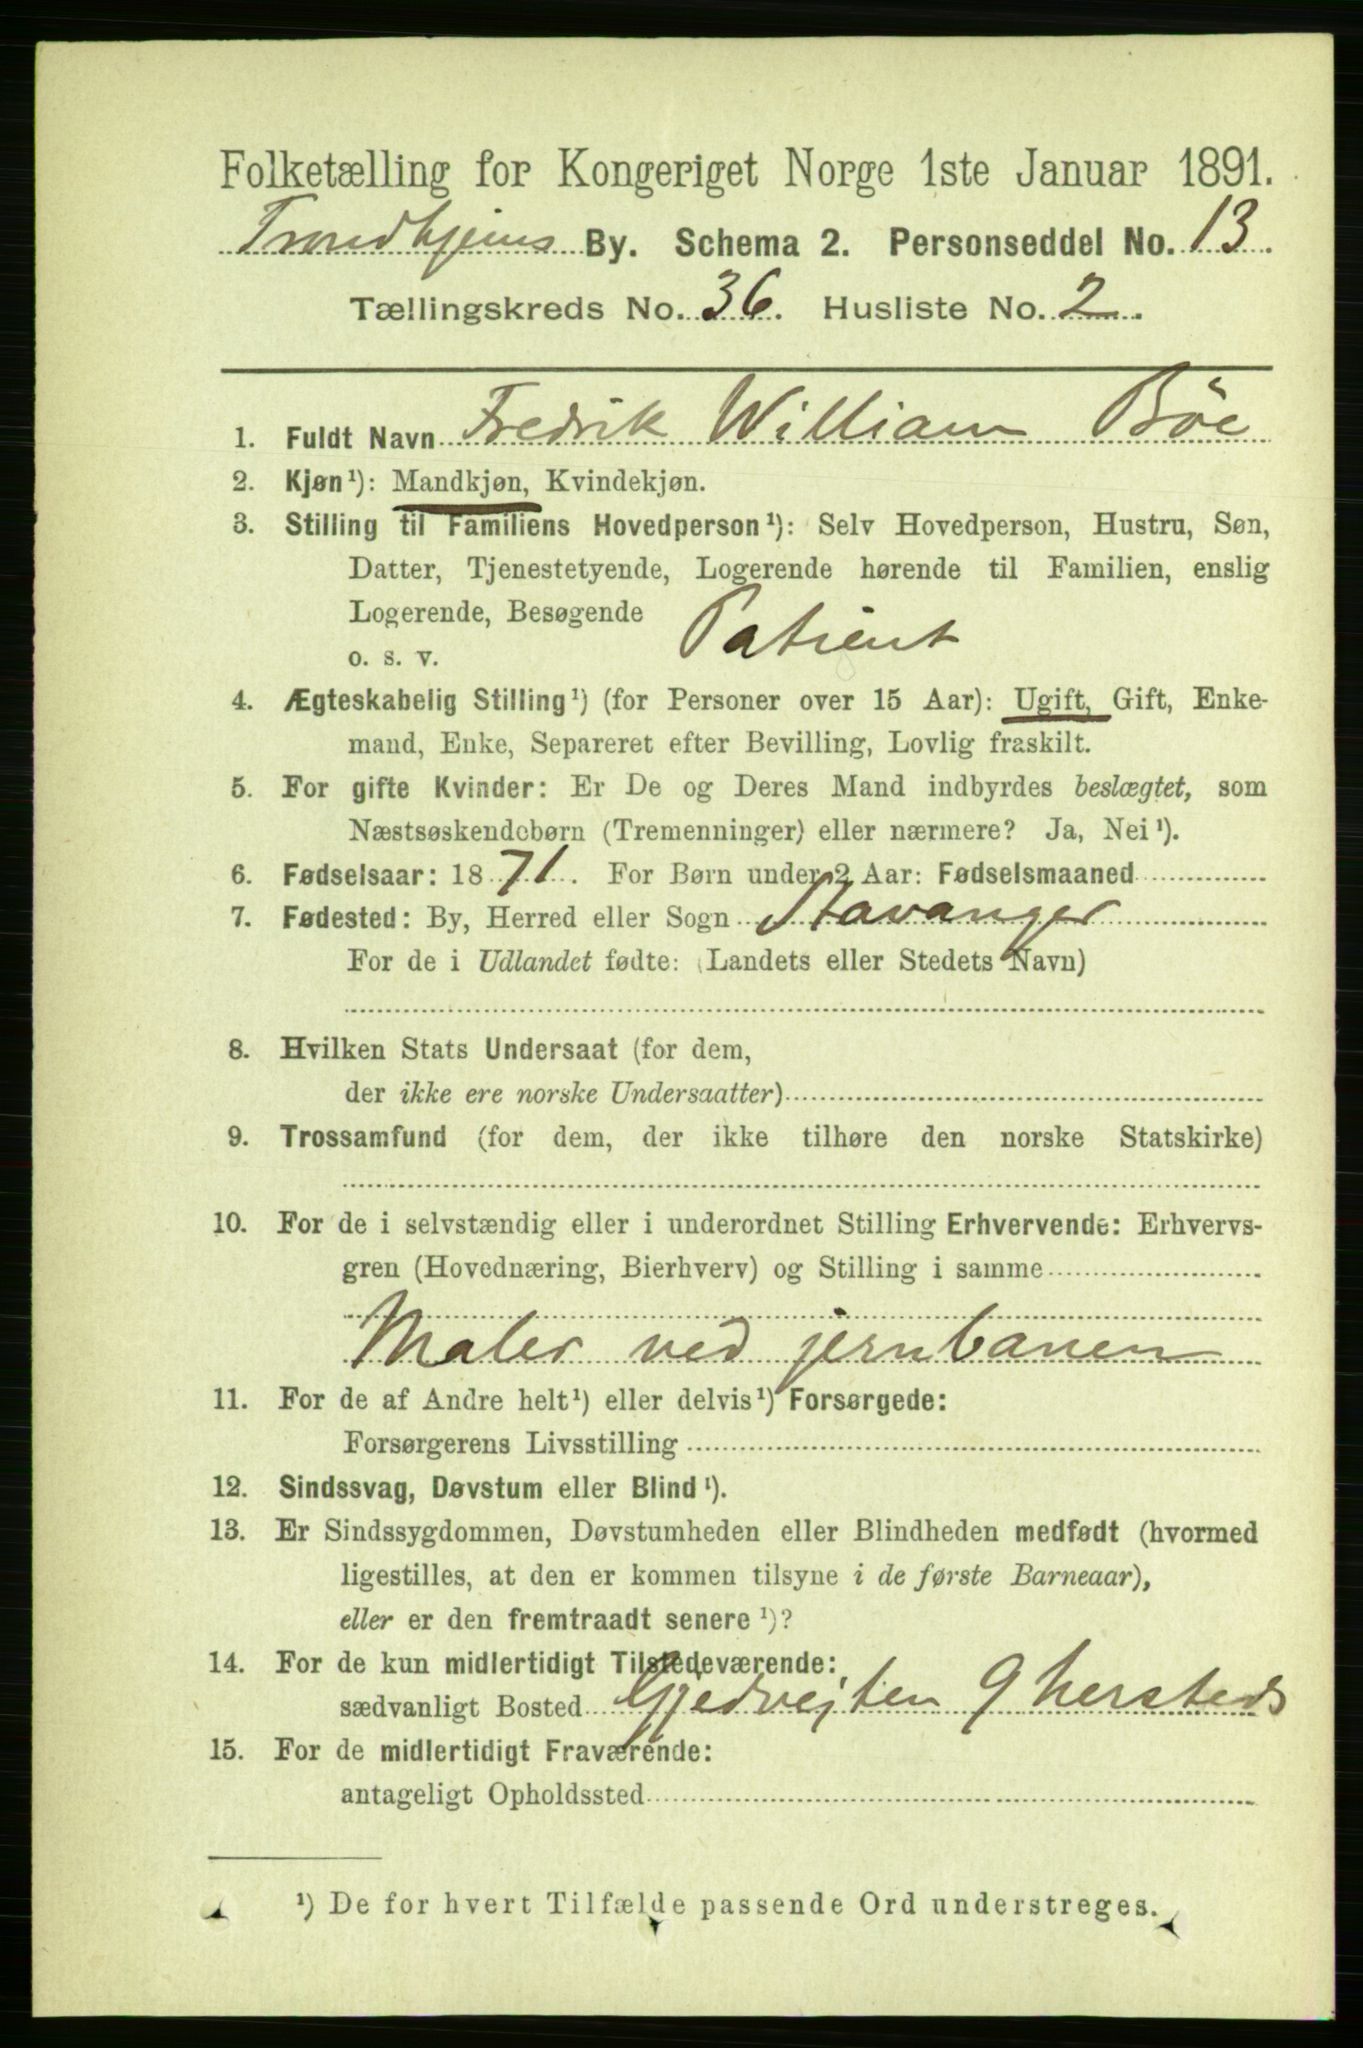 Folketælling for Kongeriget Norge 1ste Januar 1891.
Trondhjems By. Schema 2. Personseddel No. 13.
Tællingskreds No. 36. Husliste No. 2.
1. Fuldt Navn Fredrik William Böe
2. Kjøn¹): Mandkjøn, Kvindekjøn.
3. Stilling til Familiens Hovedperson¹): Selv Hovedperson, Hustru, Søn,
Datter, Tjenestetyende, Logerende hørende til Familien, enslig
Logerende, Besøgende
o. s. v. Patient
4. Ægteskabelig Stilling¹) (for Personer over 15 Aar): Ugift, Gift, Enke-
mand, Enke, Separeret efter Bevilling, Lovlig fraskilt.
5. For gifte Kvinder: Er De og Deres Mand indbyrdes beslægtet, som
Næstsøskendebørn (Tremenninger) eller nærmere? Ja, Nei¹).
6. Fødselsaar: 1871. For Børn under 2 Aar: Fødselsmaaned
7. Fødested: By, Herred eller Sogn Stavanger
For de i Udlandet fødte: (Landets eller Stedets Navn)
8. Hvilken Stats Undersaat (for dem,
der ikke ere norske Undersaatter)
9. Trossamfund (for dem, der ikke tilhøre den norske Statskirke)
10. For de i selvstændig eller i underordnet Stilling Erhvervende: Erhvervs-
gren (Hovednæring, Bierhverv) og Stilling i samme
Maler ved jernbanen
11. For de af Andre helt¹) eller delvis¹) Forsørgede:
Forsørgerens Livsstilling
12. Sindssvag, Døvstum eller Blind¹).
13. Er Sindssygdommen, Døvstumheden eller Blindheden medfødt (hvormed
ligestilles, at den er kommen tilsyne i de første Barneaar),
eller er den fremtraadt senere¹)?
14. For de kun midlertidigt Tilstedeværende:
sædvanligt Bosted 9
15. For de midlertidigt Fraværende:
antageligt Opholdssted
¹) De for hvert Tilfælde passende Ord understreges.